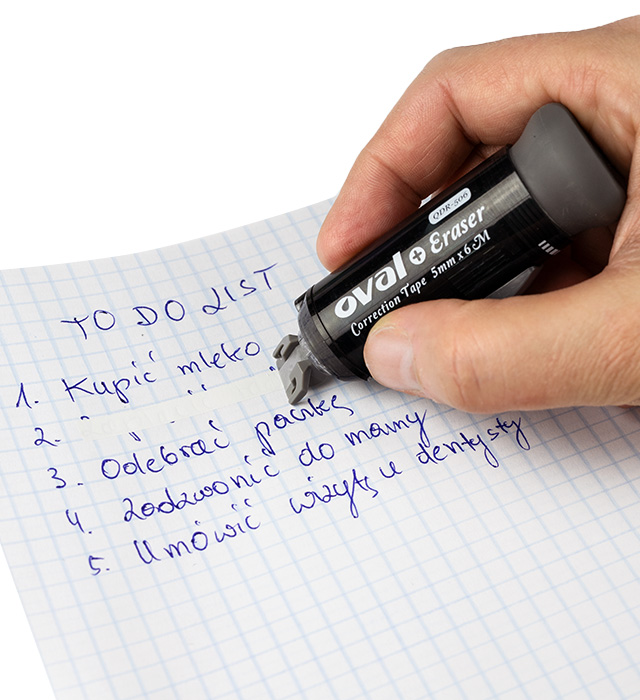 QDR-506
oval + Eraser
Correction Tape 5mm x 6M
TO DO LIST
1. Kupić mleko
2.
3. Odebrać paczkę
4. Zadzwonić do mamy
5. Umówić wizytę u dentysty